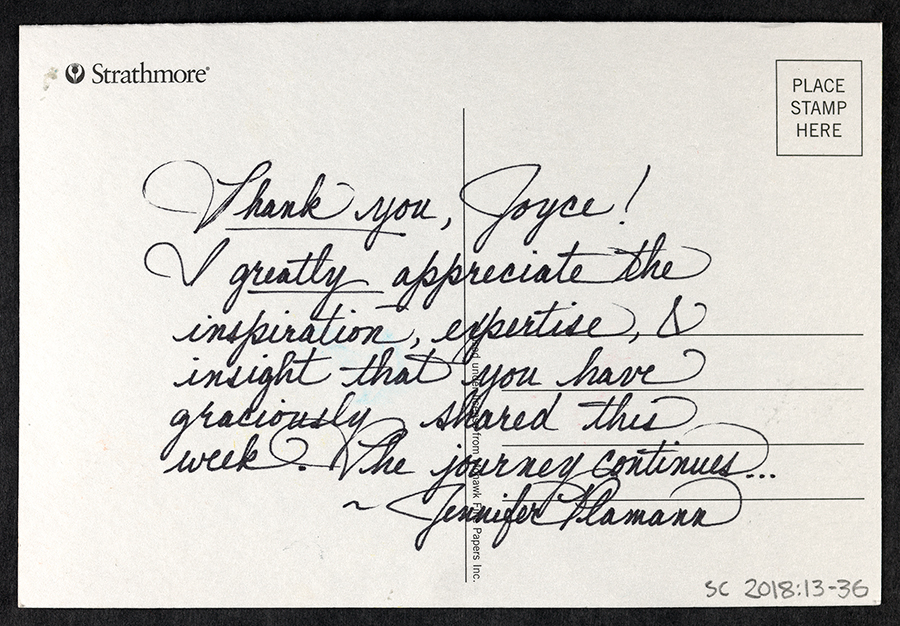 Strathmore®
PLACE
STAMP
HERE
Thank you, Joyce!
I greatly appreciate the
inspiration, expertise, &
insight that you have
graciously shared this
week. The journey continues...
~ Jennifer
from
Papers Inc.
SC 2018:13-36